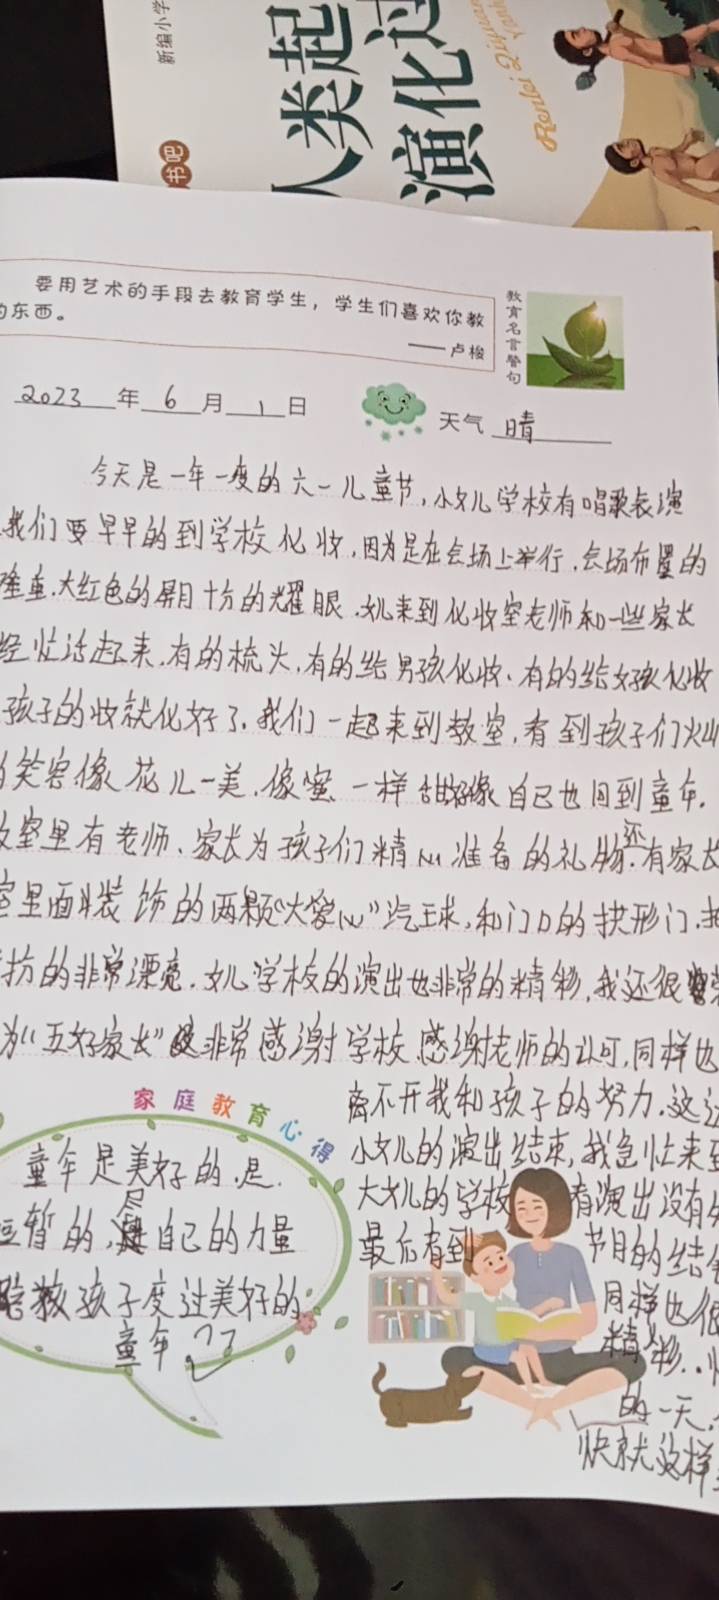 新编小学
书吧
人类起
演化过
Renlei Qiyuan
要用艺术的手段去教育学生，学生们喜欢你教
的东西。
——卢梭
教育名言警句
2023年6月1日
天气 晴
今天是一年一度的六一儿童节,小女儿学校有唱歌表演
我们要早早的到学校化妆,因为是在会场上举行.会场布置的
隆重.大红色的屏目十方的耀眼.女儿来到化妆室老师和一些家长
经忙活起来.有的梳头,有的给男孩化妆.有的给女孩化妆
孩子的妆就化好了.我们一起来到教室,看到孩子们火山
的笑容像花儿一美.像蜜一样甜好像自己也回到童年.
教室里有老师、家长为孩子们精心准备的礼物.还有家长
室里面装饰的两颗"大爱心"汽球,和门口的拱形门.
扮的非常漂亮.女儿学校的演出也非常的精彩,我还很
为"五好家长"非常感谢学校.感谢老师的认可,同样也
离不开我和孩子的努力.这
小女儿的演出结束,我急忙来到
大女儿的学校看演出没有
最后看到节目的结
同样也很
精彩..
的一天.
快就这样
家庭教育心得
童年是美好的.是.
短暂的,尽自己的力量
陪孩子度过美好的
童年